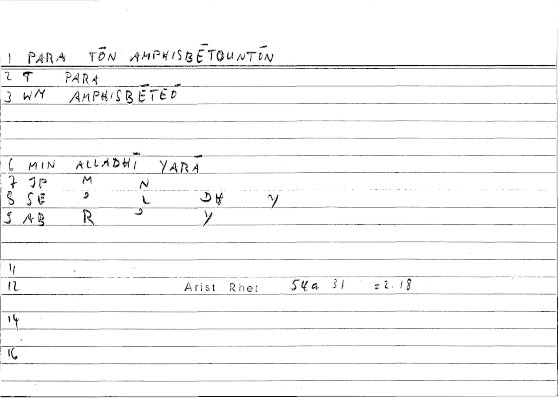 1 PARA TŌN AMPHISBĒTOUNTŌN
2 T PARA
3 WM AMPHISBĒTEŌ
6 MIN ALLADHĪ YARĀ
7 JP M N
8 SE ' L DH Y
9 AB R ' Y
11
12 Arist Rhet 54a 31 =2.18
14
16